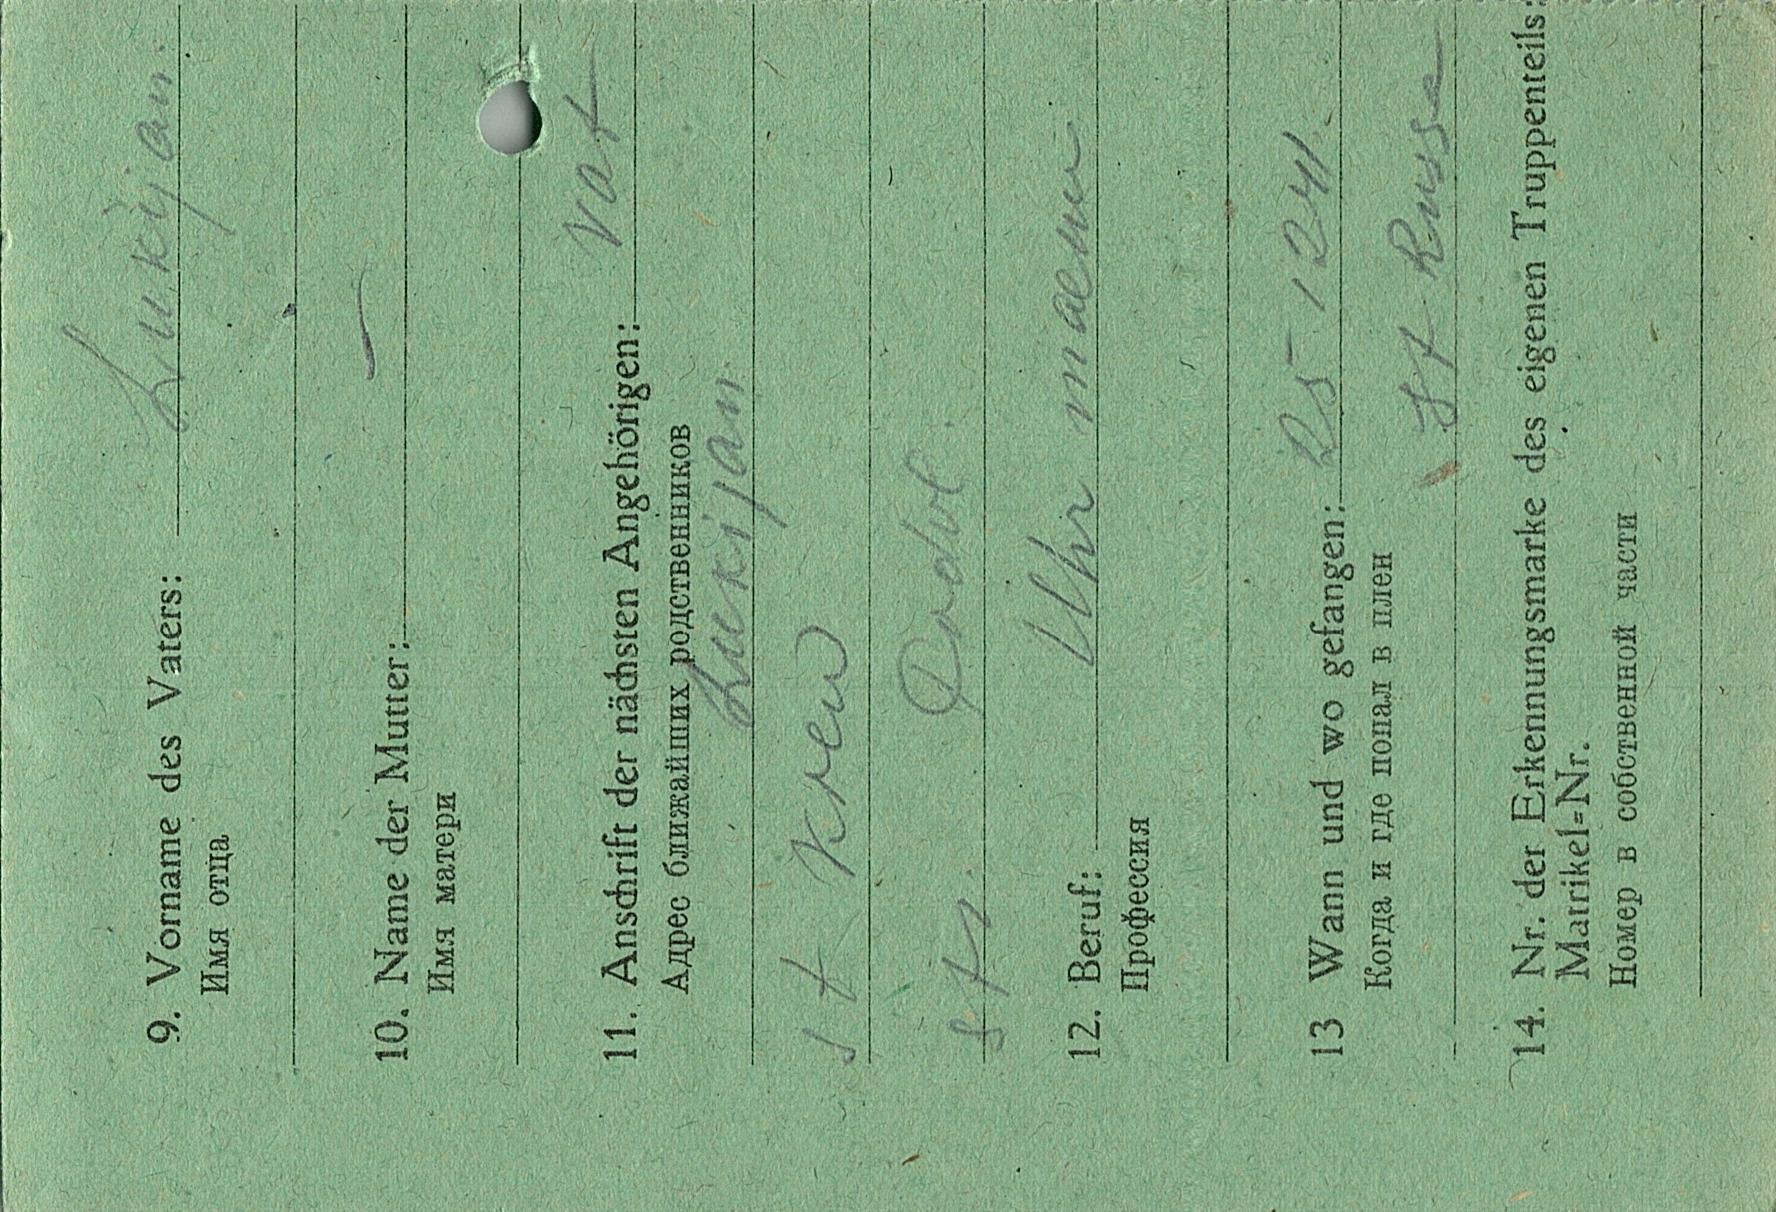 9. Vorname des Vaters: Lukijan.
Имя отца
10. Name der Mutter: —
Имя матери
11. Anschrift der nächsten Angehörigen: Vat
Адрес ближайших родственников
Lukijan.
st Krew
str. Podol.
12. Beruf: Uhr
Профессия
13 Wann und wo gefangen:
Когда и где попал в плен
St Russa
14. Nr. der Erkennungsmarke des eigenen Truppenteils:
Matrikel=Nr.
Номер в собственной части